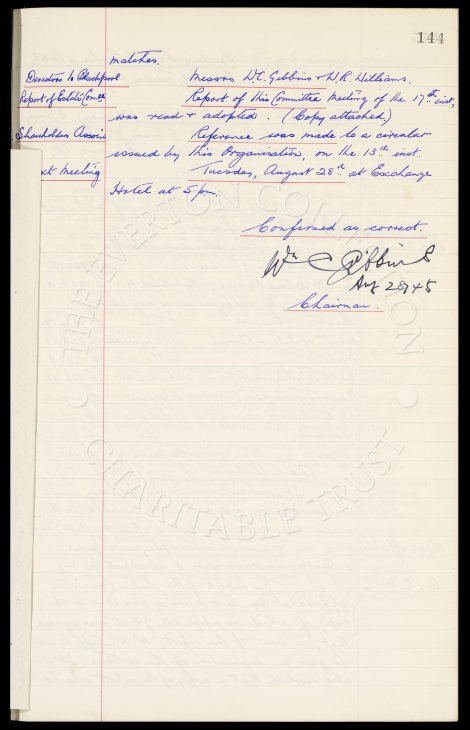 144
matches.
Directors to Blackpool Messrs W.C. Gibbins & W.R. Williams.
Report of Estate Com'ee Report of this Committee Meeting of the 17th inst,
was read & adopted. (Copy attached)
Shareholders Assoc'n Reference was made to a circular
issued by this Organisation, on the 13th inst.
Meeting Tuesday, August 28th at Exchange
Hotel at 5 pm.
Confirmed as correct.
Wm C Gibbins
Aug 28/45
Chairman.
THE EVERTON COLLECTION
CHARITABLE TRUST